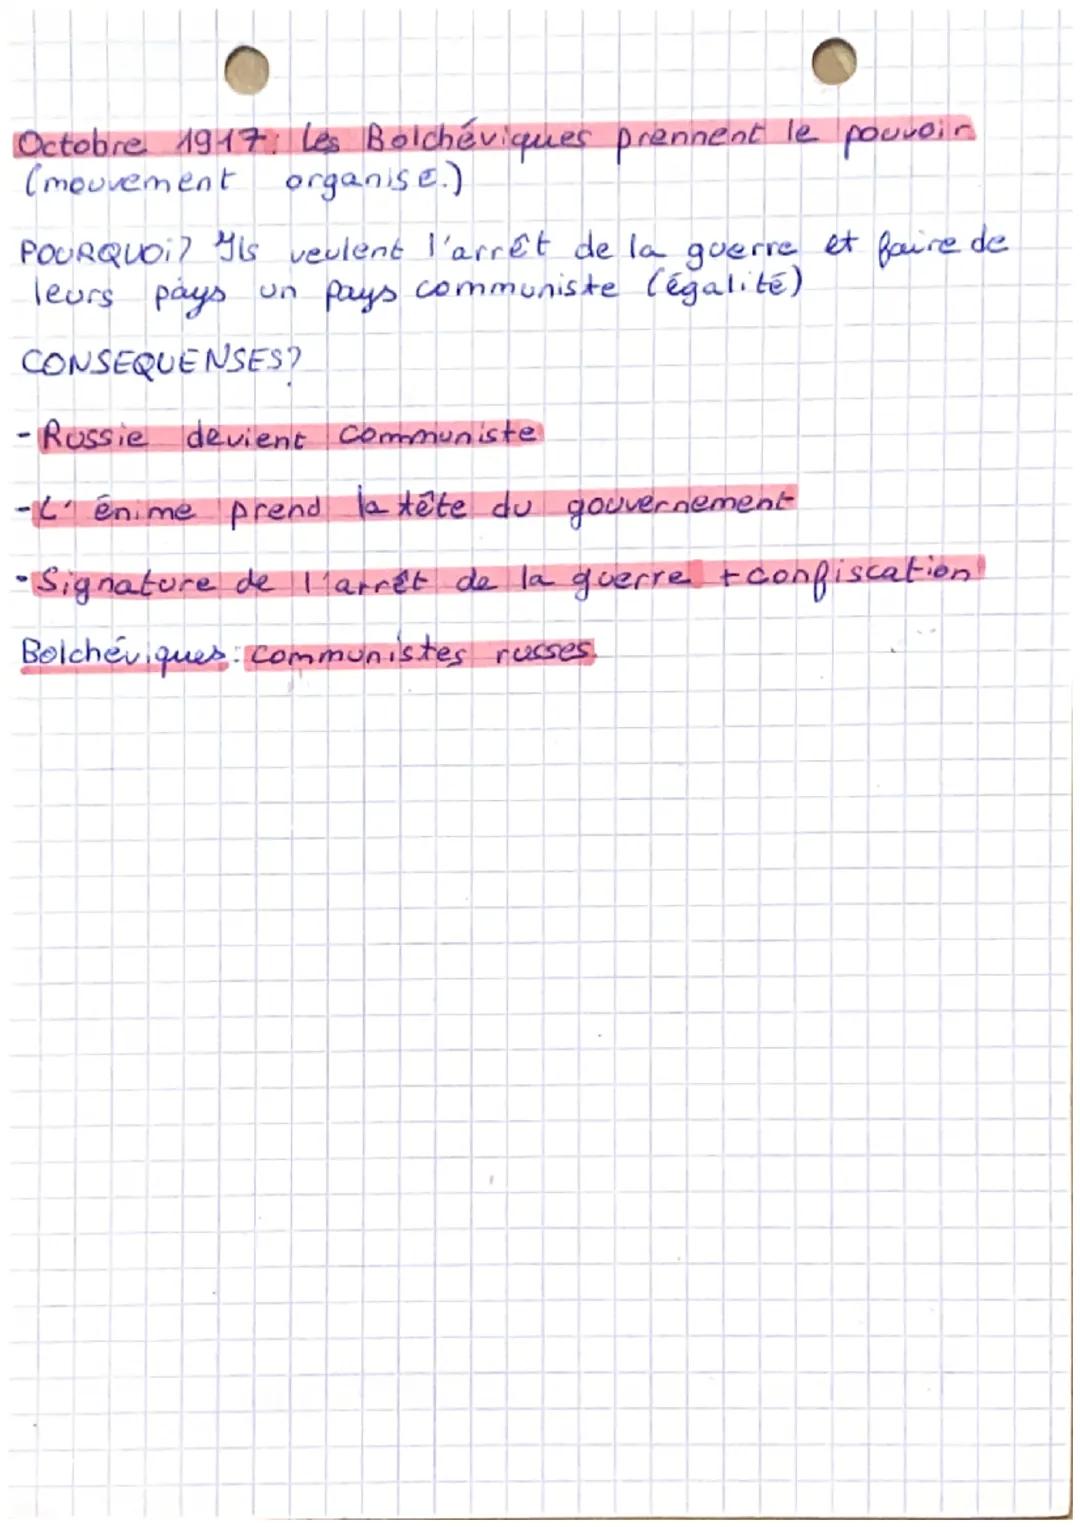 Octobre 1917: les Bolchéviques prennent le pouvoir
(mouvement organisé.)
POURQUOi? Ils veulent l'arrêt de la guerre et faire de
leurs pays un pays communiste (égalité)
CONSEQUENSES?
- Russie devient communiste
- L'énime prend la tête du gouvernement
- Signature de l'arrêt de la guerre + confiscation
Bolchéviques: communistes russes.